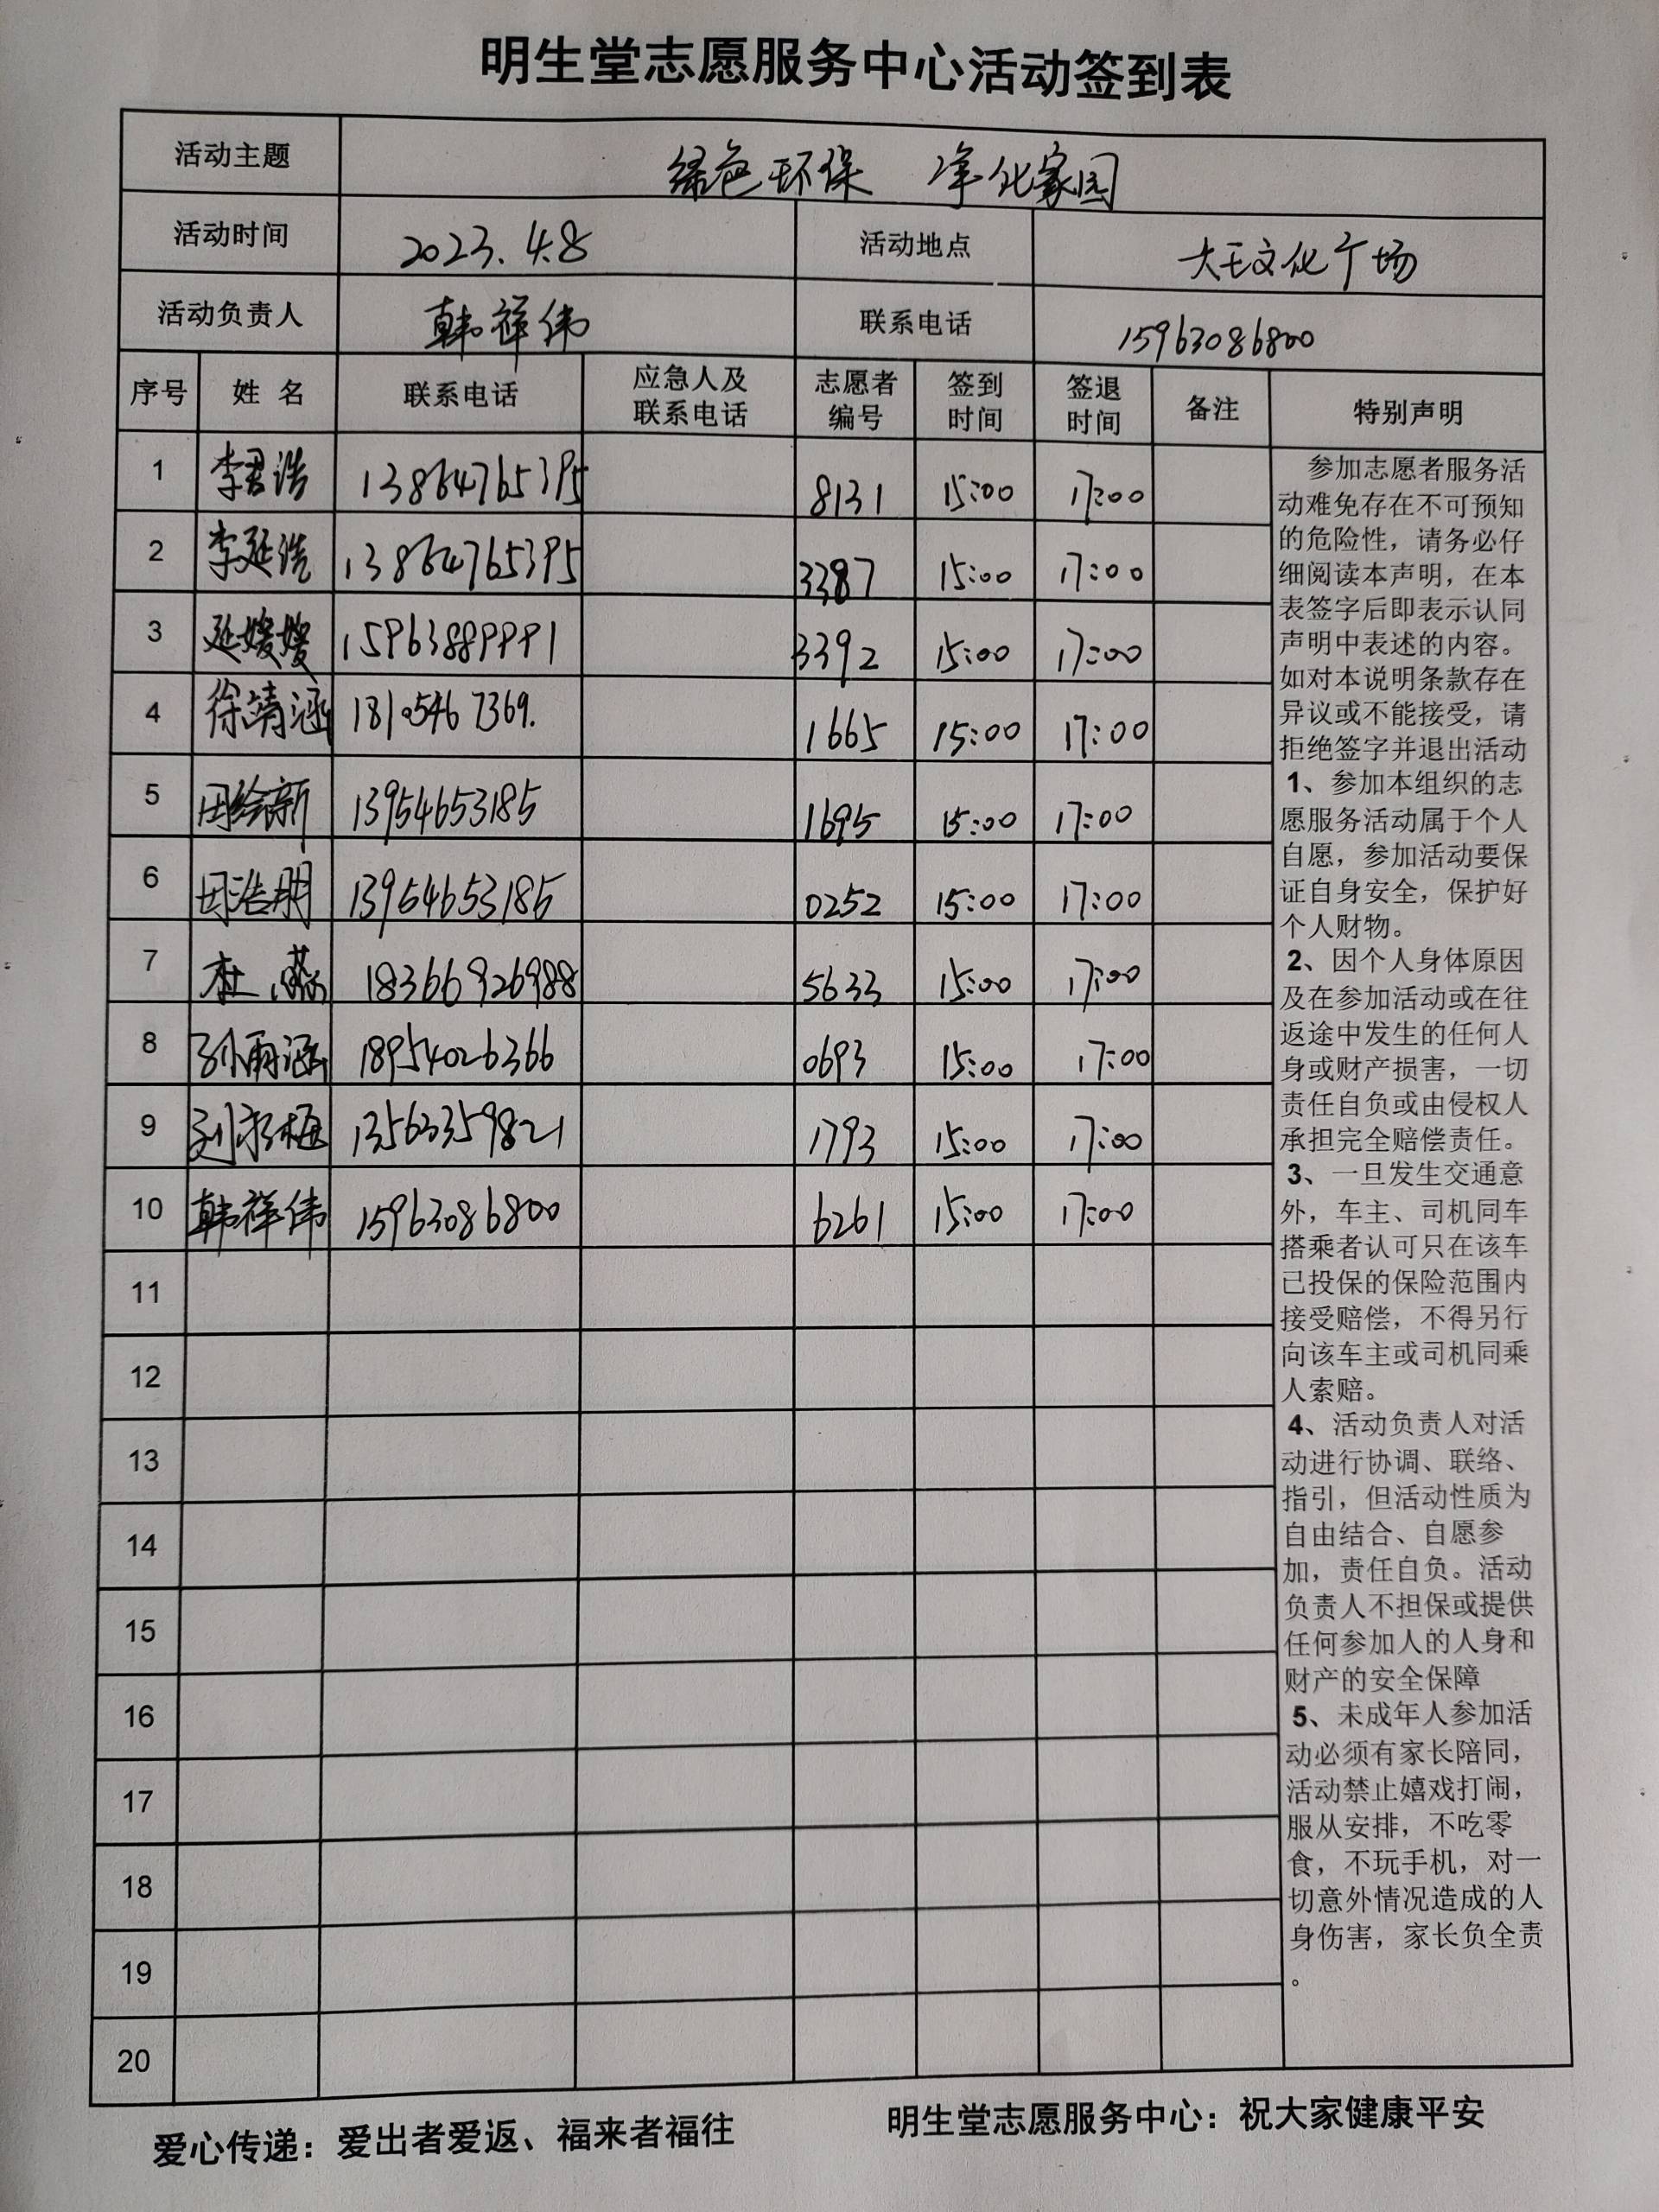 明生堂志愿服务中心活动签到表
活动主题 绿色环保 净化家园
活动时间 2023.4.8 活动地点 大王文化广场
活动负责人 韩祥伟 联系电话 15963086800
序号 姓名 联系电话 应急人及联系电话 志愿者编号 签到时间 签退时间 备注 特别声明
1 李君浩 13864765395 8131 15:00 17:00
2 李延浩 13864765395 3387 15:00 17:00
3 延媛媛 15963889991 3392 15:00 17:00
4 徐靖涵 18105467369. 1665 15:00 17:00
5 田绘新 13954653185 1695 15:00 17:00
6 田浩明 13954653185 0252 15:00 17:00
7 杜燕 18366926988 5633 15:00 17:00
8 孙雨涵 18954026366 0693 15:00 17:00
9 13563359821 1793 15:00 17:00
10 韩祥伟 15963086800 6261 15:00 17:00
11
12
13
14
15
16
17
18
19
20
参加志愿者服务活
动难免存在不可预知
的危险性，请务必仔
细阅读本声明，在本
表签字后即表示认同
声明中表述的内容。
如对本说明条款存在
异议或不能接受，请
拒绝签字并退出活动
1、参加本组织的志
愿服务活动属于个人
自愿，参加活动要保
证自身安全，保护好
个人财物。
2、因个人身体原因
及在参加活动或在往
返途中发生的任何人
身或财产损害，一切
责任自负或由侵权人
承担完全赔偿责任。
3、一旦发生交通意
外，车主、司机同车
搭乘者认可只在该车
已投保的保险范围内
接受赔偿，不得另行
向该车主或司机同乘
人索赔。
4、活动负责人对活
动进行协调、联络、
指引，但活动性质为
自由结合、自愿参
加，责任自负。活动
负责人不担保或提供
任何参加人的人身和
财产的安全保障
5、未成年人参加活
动必须有家长陪同，
活动禁止嬉戏打闹，
服从安排，不吃零
食，不玩手机，对一
切意外情况造成的人
身伤害，家长负全责
。
爱心传递：爱出者爱返、福来者福往 明生堂志愿服务中心：祝大家健康平安